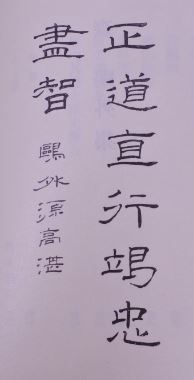 正道直行竭忠
盡智
鷗外源高湛